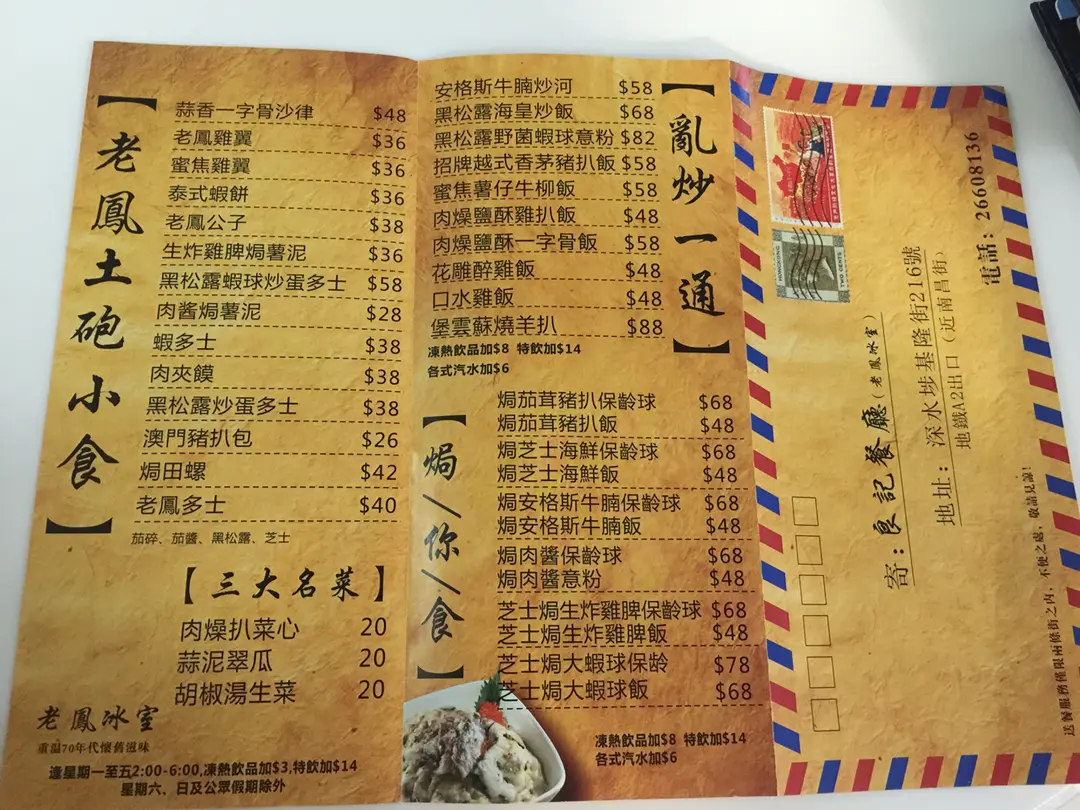 【老鳳土砲小食】
蒜香一字骨沙律 $48
老鳳雞翼 $36
蜜焦雞翼 $36
泰式蝦餅 $36
老鳳公子 $38
生炸雞脾焗薯泥 $36
黑松露蝦球炒蛋多士 $58
肉酱焗薯泥 $28
蝦多士 $38
肉夾饃 $38
黑松露炒蛋多士 $38
澳門豬扒包 $26
焗田螺 $42
老鳳多士 $40
茄碎、茄醬、黑松露、芝士
【三大名菜】
肉燥扒菜心 20
蒜泥翠瓜 20
胡椒湯生菜 20
老鳳冰室
重温70年代懷舊滋味
逢星期一至五2:00-6:00,凍熱飲品加$3,特飲加$14
星期六、日及公眾假期除外
【亂炒一通】
安格斯牛腩炒河 $58
黑松露海皇炒飯 $68
黑松露野菌蝦球意粉 $82
招牌越式香茅豬扒飯 $58
蜜焦薯仔牛柳飯 $58
肉燥鹽酥雞扒飯 $48
肉燥鹽酥一字骨飯 $58
花雕醉雞飯 $48
口水雞飯 $48
堡雲蘇燒羊扒 $88
凍熱飲品加$8 特飲加$14
各式汽水加$6
【焗/你/食】
焗茄茸豬扒保齡球 $68
焗茄茸豬扒飯 $48
焗芝士海鮮保齡球 $68
焗芝士海鮮飯 $48
焗安格斯牛腩保齡球 $68
焗安格斯牛腩飯 $48
焗肉醬保齡球 $68
焗肉醬意粉 $48
芝士焗生炸雞脾保齡球 $68
芝士焗生炸雞脾飯 $48
芝士焗大蝦球保龄 $78
芝士焗大蝦球飯 $68
凍熱飲品加$8 特飲加$14
各式汽水加$6
HONGKONG
TWO CENTS
電話: 26608136
寄: 良記餐廳(老鳳冰室)
地址: 深水埗基隆街216號
地鐵A2出口(近南昌街)
送餐服務僅限兩條街之內，不便之處，敬請見諒!